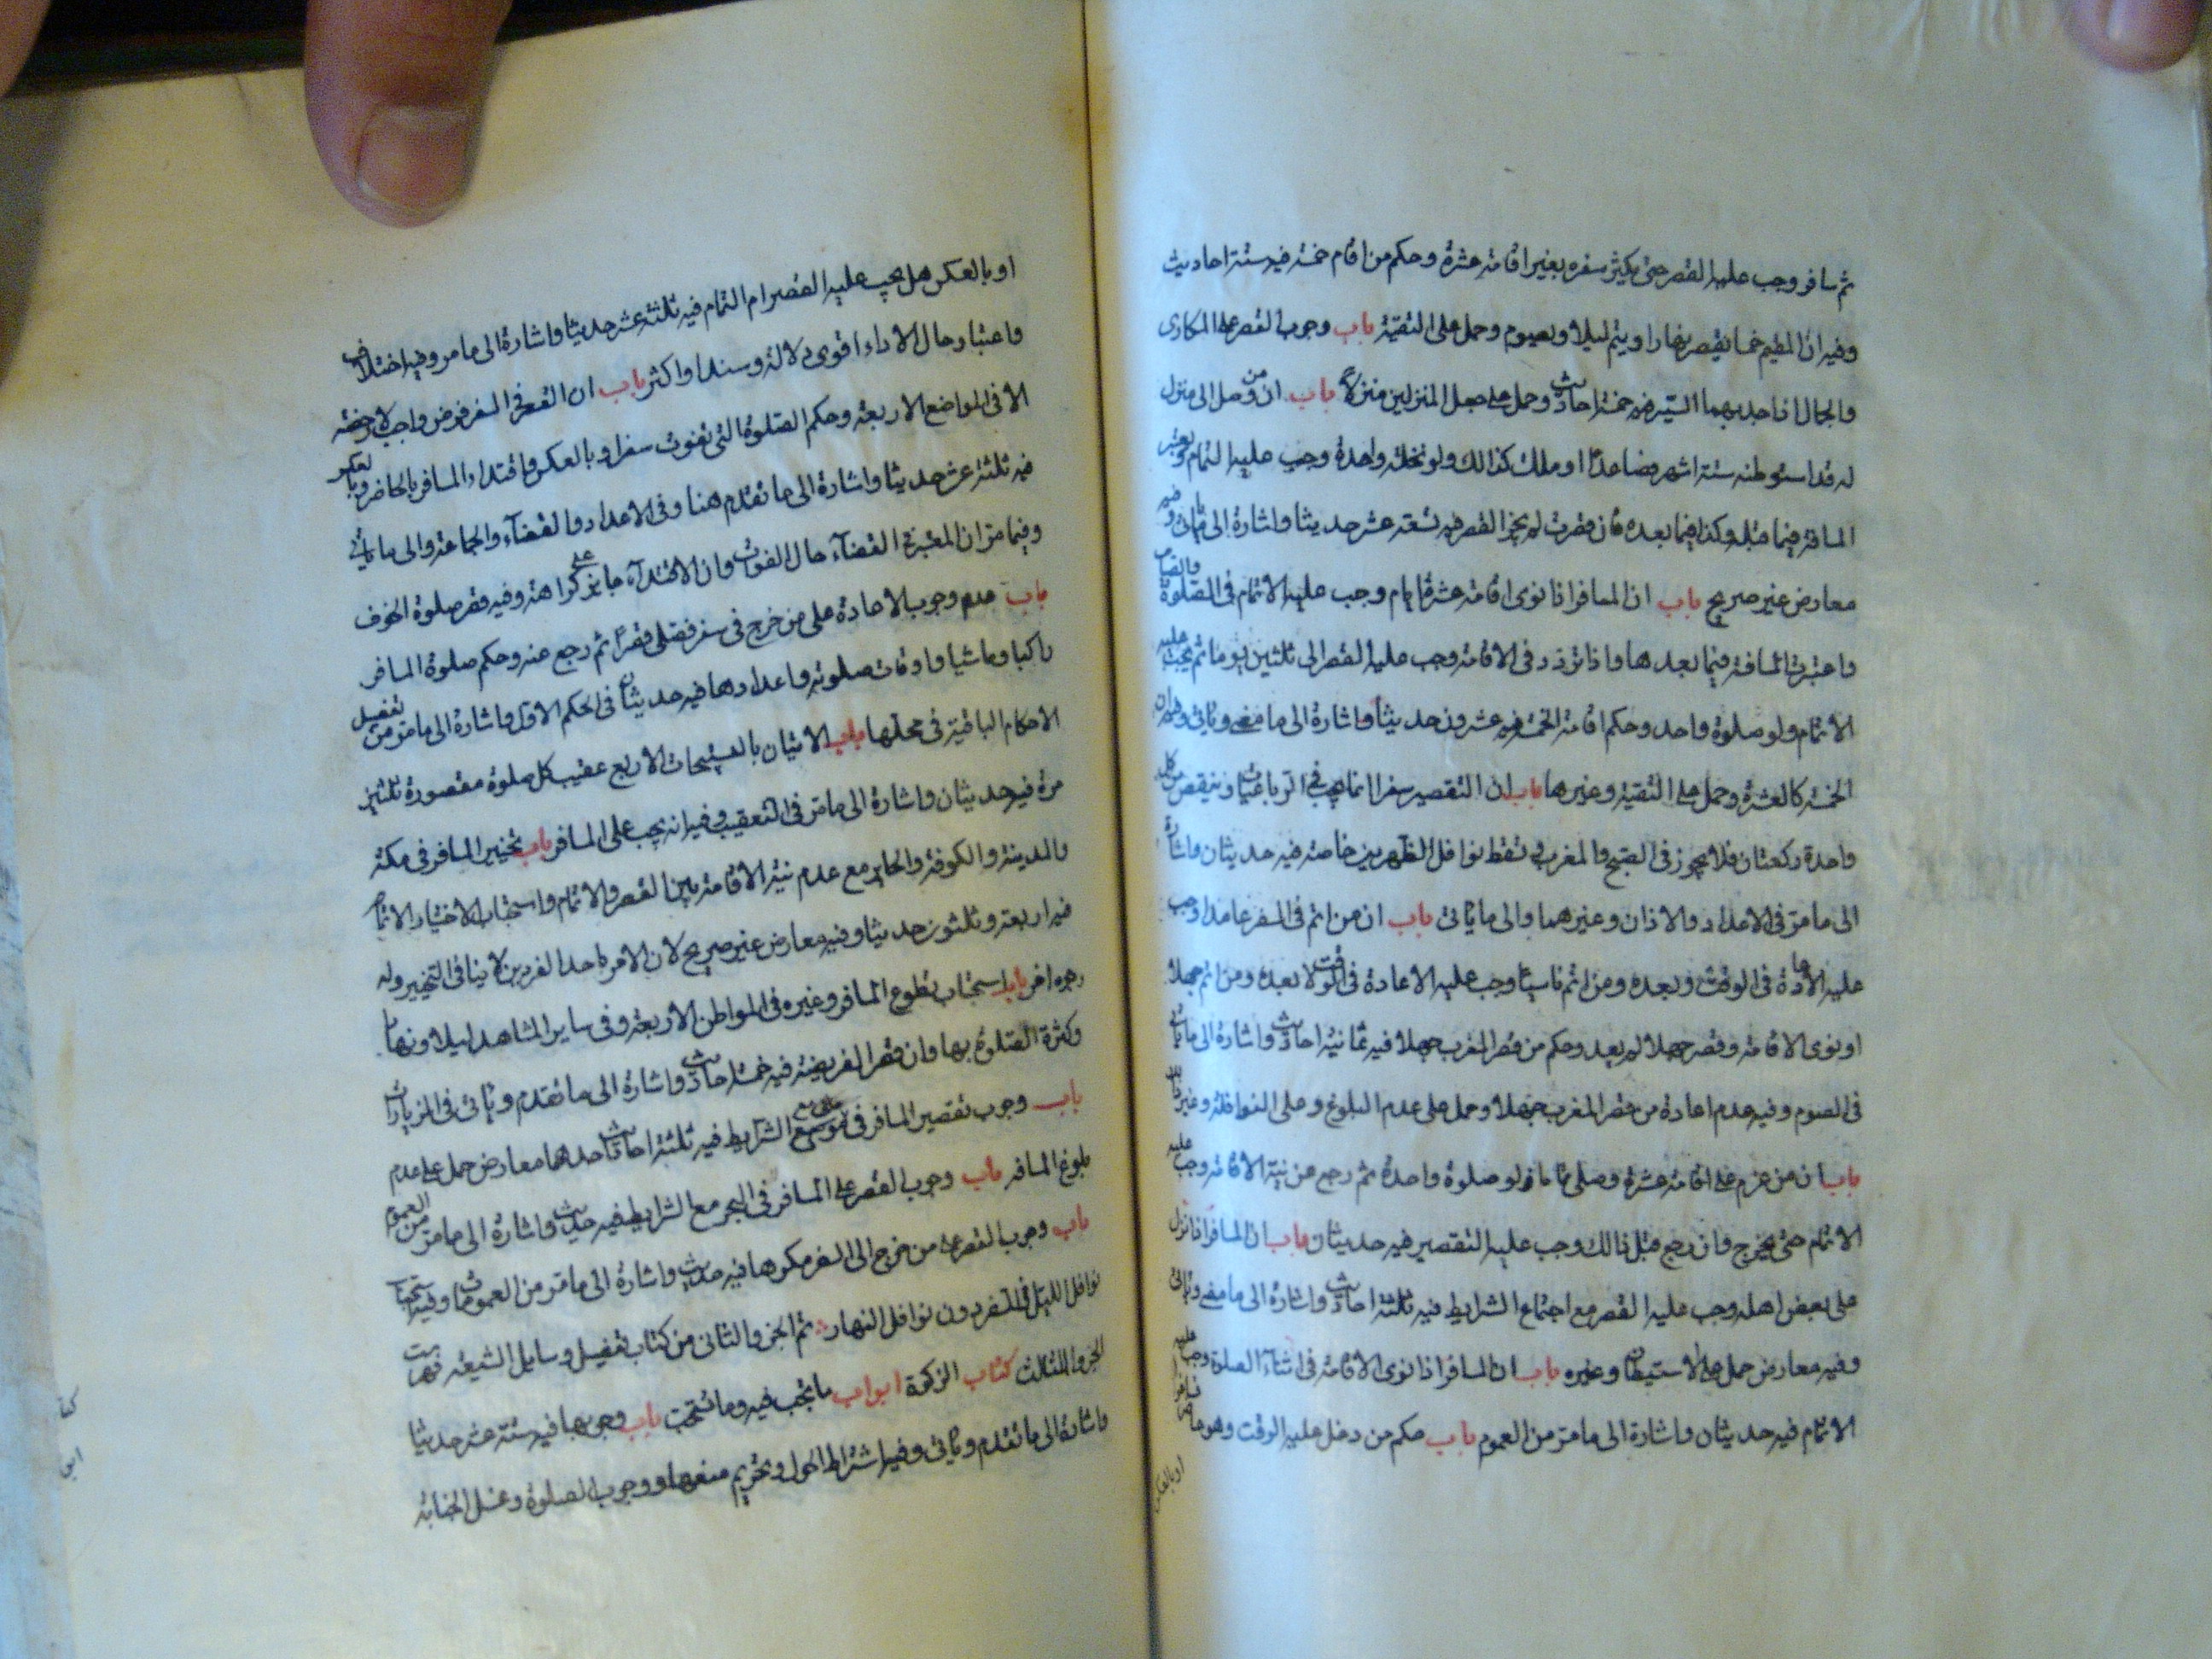 ثم سافر وجب عليه القصر حتى يكثر سفره بغير اقامة عشرة وحكم من اقام خمسة فيه ستة احاديث
وفيه ان المقيم خمسا يقصر نهارا ويتم ليلا ويصوم وحمل على التقية باب وجوب القصر على المكارى
والجمال اذا جد بهما السير فيه خمسة احاديث وحمل على جعل المنزلين منزلا باب ان من وصل الى منزل
له قد استوطنه ستة اشهر فصاعدا او ملك كذلك ولو نخلة واحدة وجب عليه التمام ويعتبر
المسافة فيما قبله وكذا فيما بعده فان قصرت لم يجز القصر فيه تسعة عشر حديثا واشارة الى ما ياتى وفيه
معارض غير صريح باب ان المسافر اذا نوى اقامة عشرة ايام وجب عليه الاتمام فى الصلوة والصيام
واعتبرت المسافة فيما بعدها واذا تردد فى الاقامة وجب عليه القصر الى ثلثين يوما ثم يجب عليه
الاتمام ولو صلوة واحدة وحكم اقامة الخمسة فيه عشرون حديثا واشارة الى ما مضى وياتى وفيه ان
الخمسة كالعشرة وحمل على التقية وغيرها باب ان التقصير سفرا انما يجب فى الرباعيات وينقص من كل
واحدة ركعتان فلا يجوز فى الصبح والمغرب وتسقط نوافل الظهرين خاصة فيه حديثان واشارة
الى ما مر فى الاعداد والاذان وغيرهما والى ما ياتى باب ان من اتم فى السفر عامدا وجب
عليه الاعادة فى الوقت وبعده ومن اتم ناسيا وجب عليه الاعادة فى الوقت لا بعده ومن اتم جهلا
او نوى الاقامة وقصر جهلا لم يعد وحكم من قصر المغرب جهلا فيه ثمانية احاديث واشارة الى ما ياتى
فى الصوم وفيه عدم اعادة من قصر المغرب جهلا وحمل على عدم البلوغ وعلى النوافلة وغير ذلك
باب ان من عزم على اقامة عشرة وصلى تماما ولو صلوة واحدة ثم رجع عن نية الاقامة وجب عليه
الاتمام حتى يخرج وان رجع قبل ذلك وجب عليه التقصير فيه حديثان باب ان المسافر اذا نزل
على بعض اهله وجب عليه القصر مع اجتماع الشرايط فيه ثلثة احاديث واشارة الى ما مضى وياتى
وفيه معارض حمل على الاستيطان وغيره باب ان المسافر اذا نوى الاقامة فى اثناء الصلوة وجب عليه
الاتمام فيه حديثان واشارة الى ما مر من العموم باب حكم من دخل عليه الوقت وهو حاضر فسافر
او بالعكس
او بالعكس هل يجب عليه القصر ام التمام فيه ثلثة عشر حديثا واشارة الى ما مر وفيه اختلاف
واعتبار حال الاداء اقوى دلالة وسندا واكثر باب ان القصر فى السفر فرض واجب لا رخصة
الا فى المواضع الاربعة وحكم الصلوة التى تفوت سفرا وبالعكس واقتداء المسافر بالحاضر وبالعكس
فيه ثلثة عشر حديثا واشارة الى ما تقدم هنا وفى الاعداد والقضآء والجماعة والى ما ياتى
وفيما مر ان المعتبر فى القضآء حال الفوات وان الاقتدآء جايز على كراهة وفيه قصر صلوة الخوف
باب عدم وجوب الاعادة على من خرج فى سفر فصلى قصرا ثم رجع عنه وحكم صلوة المسافر
راكبا وماشيا واوقات صلوته واعدادها فيه حديثان فى الحكم الاول واشارة الى ما مر من تفصيل
الاحكام الباقية فى محلها باب الاتيان بالتسبيحات الاربع عقيب كل صلوة مقصورة ثلثين
مرة فيه حديثان واشارة الى ما مر فى التعقيب وفيه انه يجب على المسافر باب تخيير المسافر فى مكة
والمدينة والكوفة والحاير مع عدم نية الاقامة بين القصر والاتمام واستحباب اختيار الاتمام
فيه اربعة وثلثون حديثا وفيه معارض غير صريح لان الامر باحد الفردين لا ينافى التخيير وله
وجوه اخر باب استحباب تطوع المسافر وغيره فى المواطن الاربعة وفى ساير المشاهد ليلا ونهارا
وكثرة الصلوة بها وان قصر الفريضة فيه خمسة احاديث واشارة الى ما تقدم وياتى فى الزيارات
باب وجوب تقصير المسافر فى منى مع الشرايط فيه ثلثة احاديث احدها معارض حمل على عدم
بلوغ المسافة باب وجوب القصر على المسافر فى البحر مع الشرايط فيه حديث واشارة الى ما مر من العموم
باب وجوب القصر على من خرج الى السفر مكرها فيه حديث واشارة الى ما مر من العمومات وفيه استحباب
نوافل الليل فى السفر دون نوافل النهار تم الجزء الثانى من كتاب تفصيل وسايل الشيعة فهرست
الجزء الثالث كتاب الزكوة ابواب ما تجب فيه وما تستحب باب وجوبها فيه ستة عشر حديثا
واشارة الى ما تقدم وياتى وفيه اشتراط الحول وتحريم منعها ووجوب الصلوة وغسل الجنابة